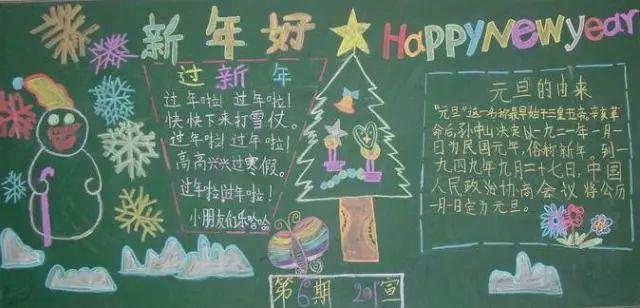 新年好
HAPPYNewyear
过新年
过年啦!过年啦!
快快下来打雪仗。
过年啦!过年啦!
高高兴兴过寒假。
过年啦!过年啦!
小朋友们乐哈哈
元旦的由来
"元旦"这一名称最早始于三皇五帝,辛亥革
命后,孙中山决定以一九二一年一月一
日为民国元年,俗称新年,到一
九四九年九月二十七日,中国
人民政治协商会议将公历
一月一日定为元旦。
第6期
宣